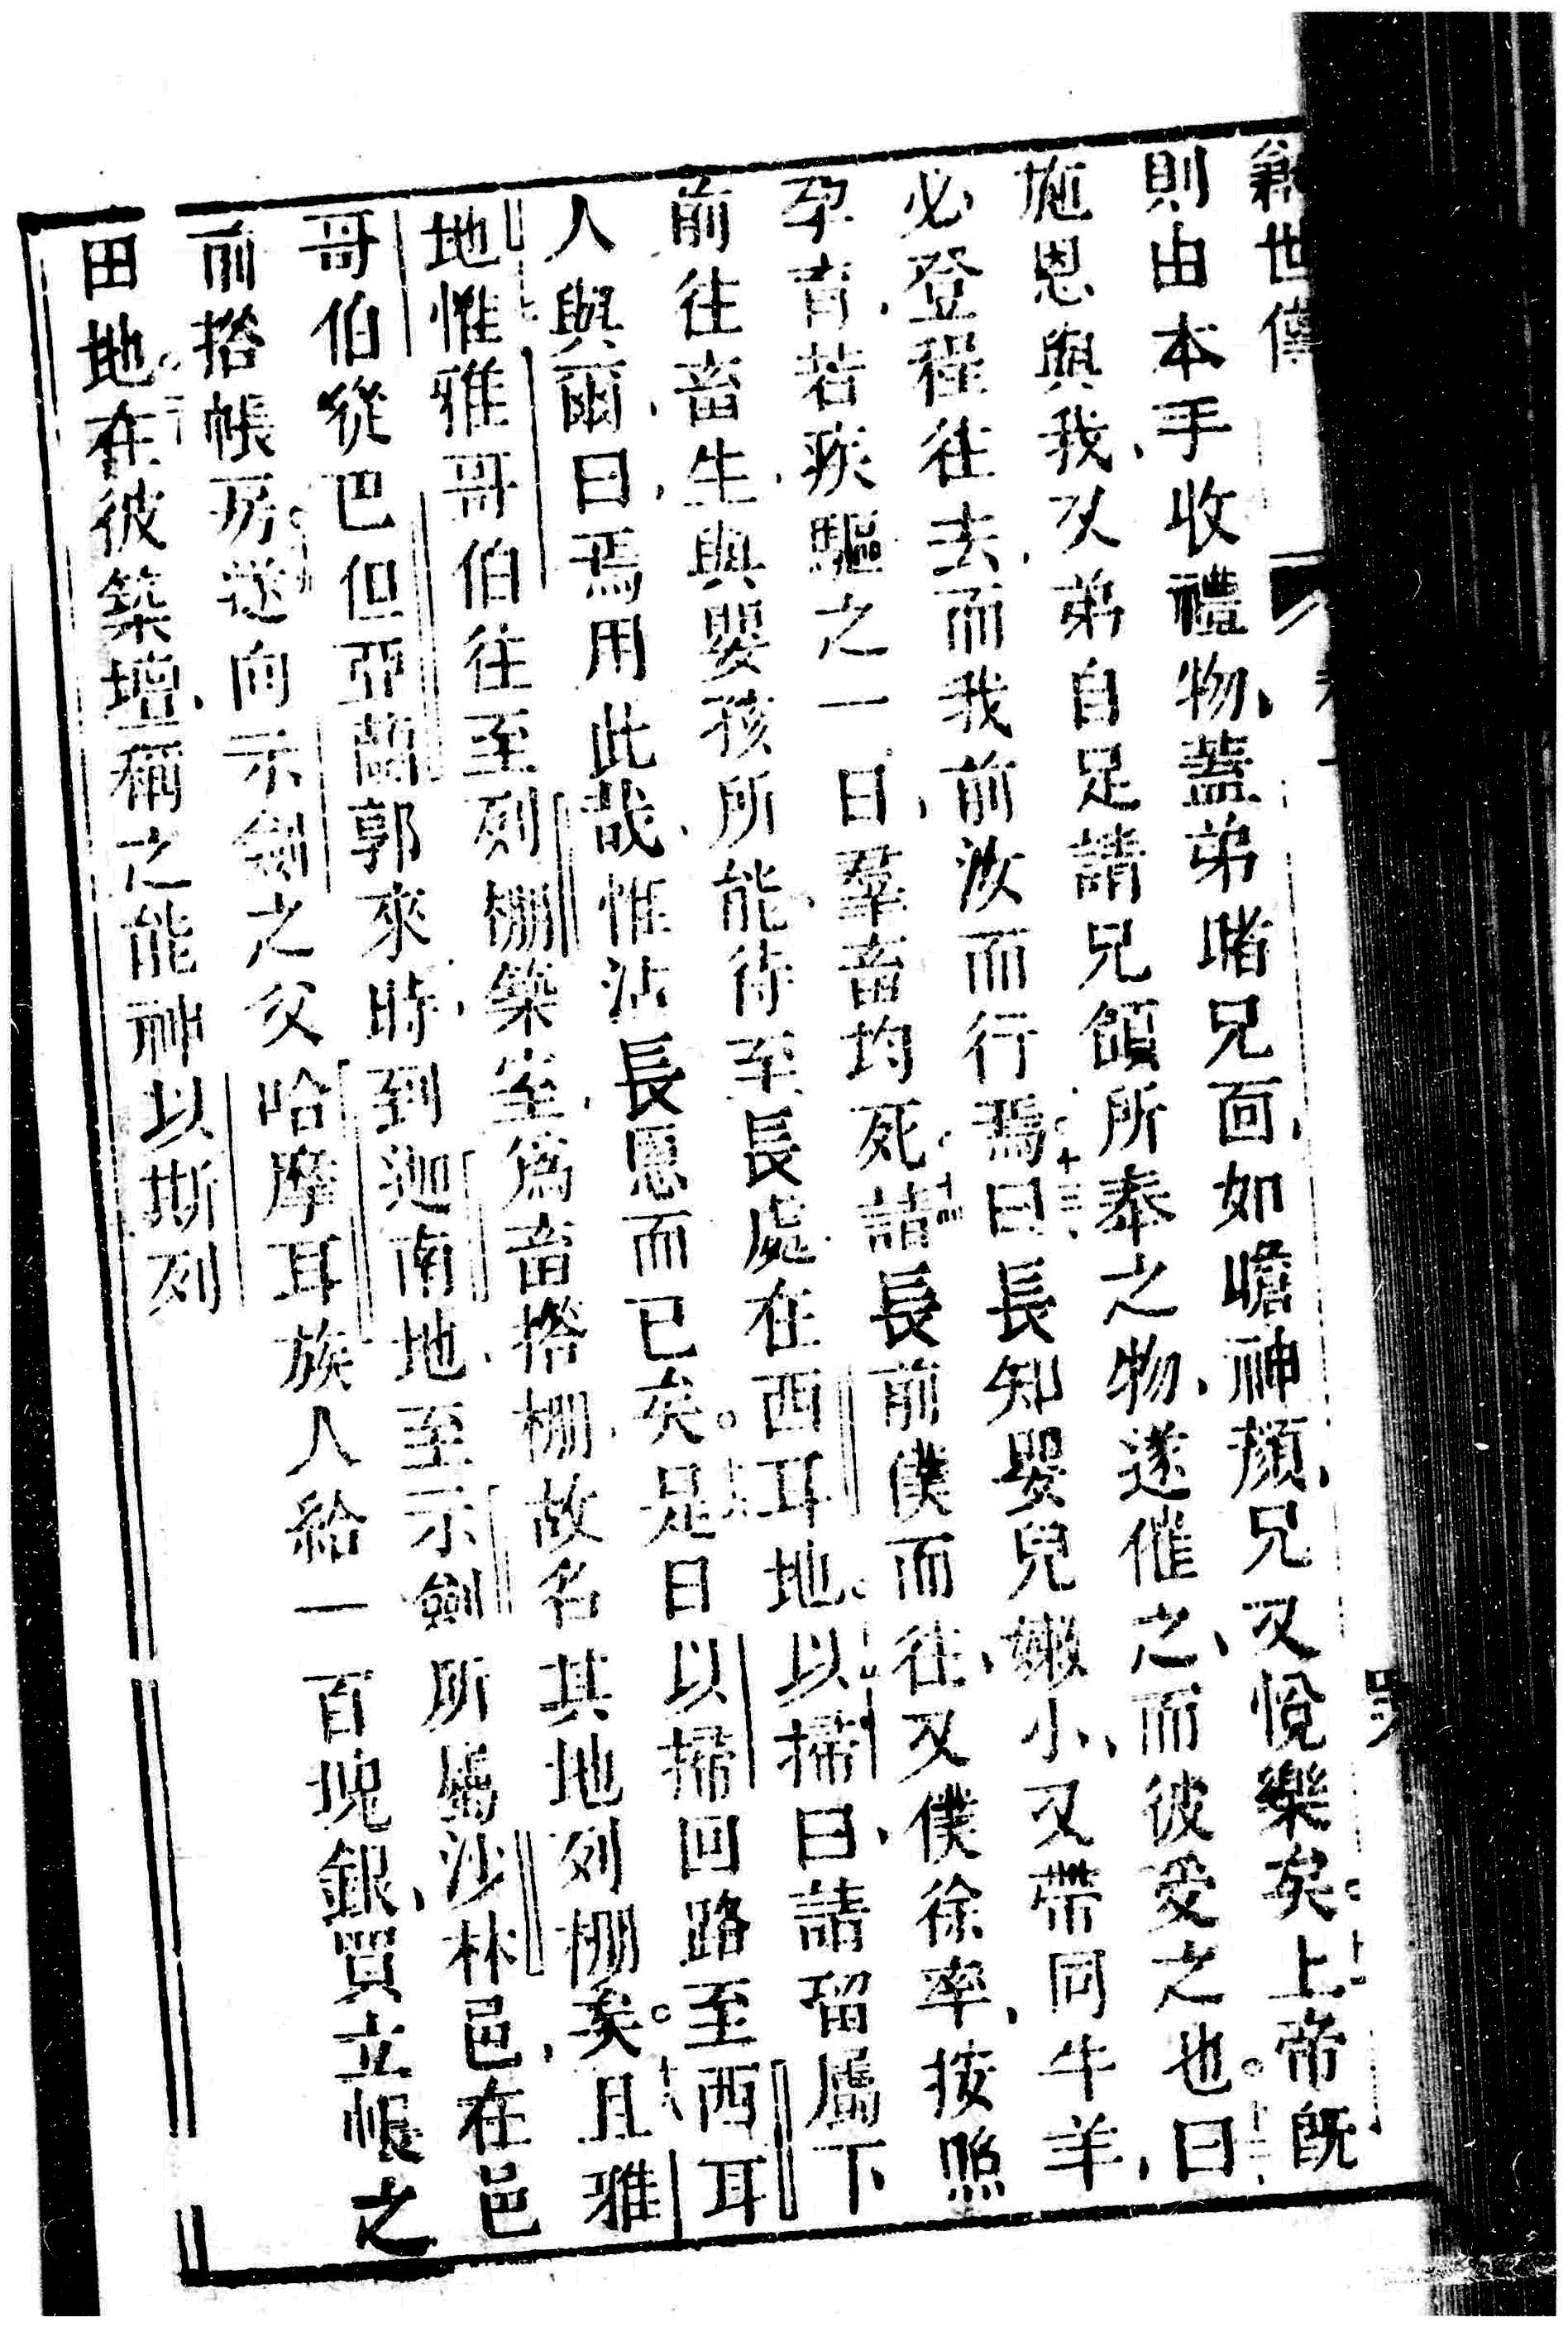 創世傳
則由本手收禮物、蓋弟啫兄面、如嶦神顏、兄又悅樂矣。十一上帝既
施恩與我、又弟自足、請兄領所奉之物、遂催之、而彼受之也。十二曰
必登程往去、而我前汝而行焉。十三曰、長知嬰兒嫩小、又帶同牛羊、
孕育、若疾驅之一日、羣畜均死。十四請長前僕而往、又僕徐率、按照
前往畜生、與嬰孩所能待、至長處在西耳地。十五以掃曰、請留屬下
人與爾、曰、焉用此哉、惟沾長恩而已矣。十六是日以掃回路至西耳
地、十七惟雅哥伯往至列棚、築室、爲畜搭棚、故名其地列棚矣。十八且雅
哥伯從巴但亞蘭郭來時、到迦南地、至示劍所屬沙林邑、在邑
前搭帳房。十九遂向示劍之父哈摩耳族人、給一百塊銀、買立帳之
田地。二十在彼築壇、稱之能神以斯列